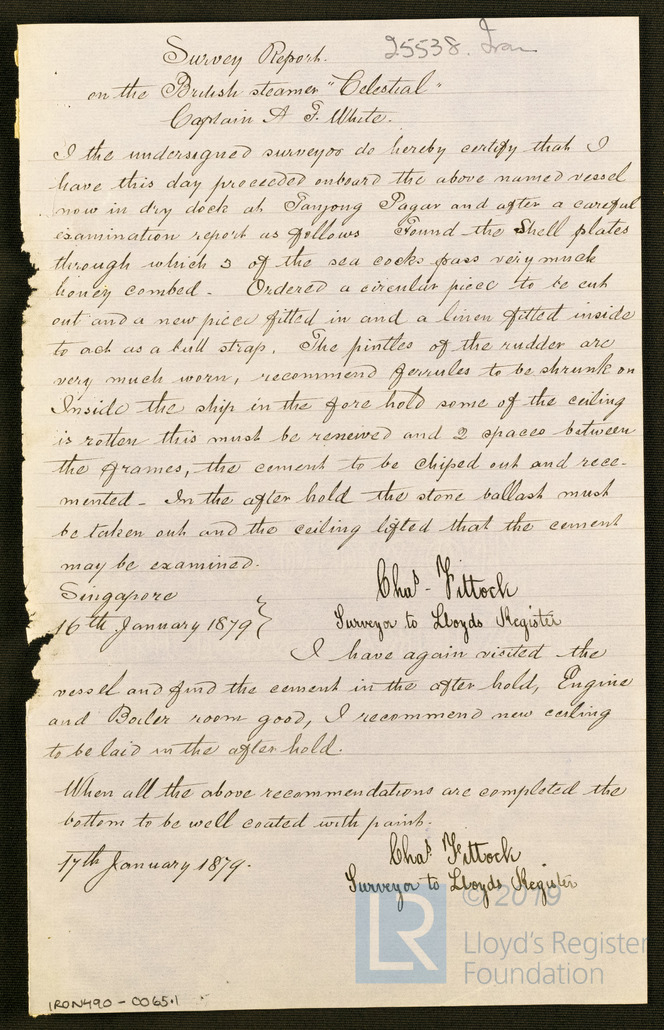 25538. Iron
Survey Report.
on the British steamer "Celestial"
Captain A. F. White.
I the undersigned surveyor do hereby certify that I
have this day proceeded onboard the above named vessel
now in dry dock at Tanjong Pagar and after a careful
examination report as follows Found the Shell plates
through which 3 of the sea cocks pass very much
honey combed. Ordered a circular piece to be cut
out and a new piece fitted in and a linen fitted inside
to act as a butt strap. The pintles of the rudder are
very much worn, recommend ferrules to be shrunk on
Inside the ship in the fore hold some of the ceiling
is rotten this must be renewed and 2 spaces between
the frames, the cement to be chiped out and rece-
mented. In the after hold the stone ballast must
be taken out and the ceiling lifted that the cement
may be examined.
Singapore
16th January 1879
Chas. Fittock
Surveyor to Lloyds Register
I have again visited the
vessel and find the cement in the after hold, Engine
and Boiler room good, I recommend new ceiling
to be laid in the after hold.
When all the above recommendations are completed the
bottom to be well coated with paint.
17th January 1879.
Chas. Fittock
Surveyor to Lloyds Register
© 2019
LR
Lloyd's Register
Foundation
IRON490-0065.1